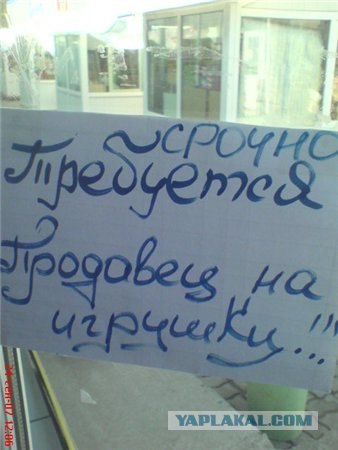 СРОЧНО
Требуется
Продавец на
игрушки!!!
YAPLAKAL.COM